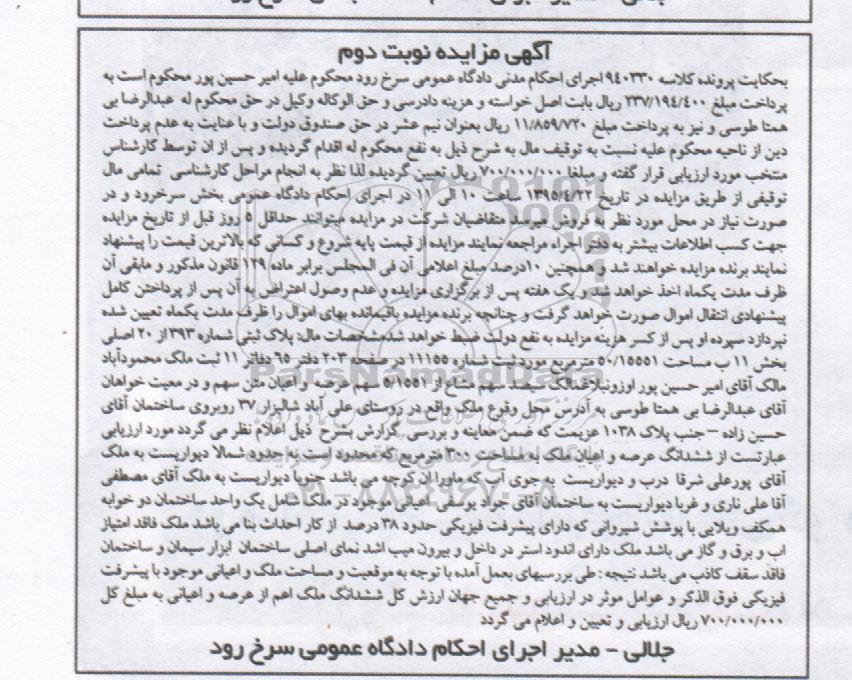 آگهی مزایده نوبت دوم
بحکایت پرونده کلاسه ۹٤۰۳۳۰ اجرای احکام مدنی دادگاه عمومی سرخ رود محکوم علیه امیر حسین پور محکوم است به
پرداخت مبلغ ۲۳۷/۱۹٤/٤۰۰ ریال بابت اصل خواسته و هزینه دادرسی و حق الوکاله وکیل در حق محکوم له عبدالرضا بی
همتا طوسی و نیز به پرداخت مبلغ ۱۱/۸٥۹/۷۲۰ ریال بعنوان نیم عشر در حق صندوق دولت و با عنایت به عدم پرداخت
دین از ناحیه محکوم علیه نسبت به توقیف مال به شرح ذیل به نفع محکوم له اقدام گردیده و پس از ان توسط کارشناس
منتخب مورد ارزیابی قرار گفته و مبلغا ۷۰۰/۰۰۰/۰۰۰ ریال تعیین گردیده لذا نظر به انجام مراحل کارشناسی تمامی مال
توقیفی از طریق مزایده در تاریخ ۱۳۹٥/٤/۲۲ ساعت ۱۰ الی ۱۱ در اجرای احکام دادگاه عمومی بخش سرخرود و در
صورت نیاز در محل مورد نظر به فروش میرسد متقاضیان شرکت در مزایده میتوانند حداقل ٥ روز قبل از تاریخ مزایده
جهت کسب اطلاعات بیشتر به دفتر اجراء مراجعه نمایند مزایده از قیمت پایه شروع و کسانی که بالاترین قیمت را پیشنهاد
نمایند برنده مزایده خواهند شد و همچنین ۱۰درصد مبلغ اعلامی آن فی المجلس برابر ماده ۱۲۹ قانون مذکور و مابقی آن
ظرف مدت یکماه اخذ خواهد شد و یک هفته پس از برگزاری مزایده و عدم وصول اعتراض به آن پس از پرداختن کامل
پیشنهادی انتقال اموال صورت خواهد گرفت و چنانچه برنده مزایده باقیمانده بهای اموال را ظرف مدت یکماه تعیین شده
نپردازد سپرده او پس از کسر هزینه مزایده به نفع دولت ضبط خواهد شد.مشخصات مال: پلاک ثبتی شماره ۳۹۳ از ۲۰ اصلی
بخش ۱۱ ب مساحت ٥۰/۱٥٥٥۱ متر مربع مورد ثبت شماره ۱۱۱٥٥ در صفحه ۲۰۳ دفتر ٦٥ دفاتر ۱۱ ثبت ملک محمودآباد
مالک آقای امیر حسین پور اوزونبلاغ مالک سیصد سهم مشاع از ٥/۱٥٥۱ سهم عرصه و اعیان متن سهم و در معیت خواهان
آقای عبدالرضا بی همتا طوسی به آدرس محل وقوع ملک واقع در روستای علی آباد شالیزار ۳۷ روبروی ساختمان آقای
حسین زاده – جنب پلاک ۱۰۳۸ عزیمت که ضمن معاینه و بررسی گزارش بشرح ذیل اعلام نظر می گردد مورد ارزیابی
عبارتست از ششدانگ عرصه و اعیان ملک به مساحت ۳۰۰ مترمربع که محدود است به حدود شمالا دیواریست به ملک
آقای پورعلی شرقا درب و دیواریست به جوی آب که ماورا ان کوچه می باشد جنوبا دیواریست به ملک آقای مصطفی
آقا علی ناری و غربا دیواریست به ساختمان آقای جواد یوسفی. اعیانی موجود در ملک شامل یک واحد ساختمان دو خوابه
همکف ویلایی با پوشش شیروانی که دارای پیشرفت فیزیکی حدود ۳۸ درصد از کار احداث بنا می باشد ملک فاقد امتیاز
اب و برق و گاز می باشد ملک دارای اندود استر در داخل و بیرون میب اشد نمای اصلی ساختمان ابزار سیمان و ساختمان
فاقد سقف کاذب می باشد نتیجه : طی بررسیهای بعمل آمده با توجه به موقعیت و مساحت ملک و اعیانی موجود با پیشرفت
فیزیکی فوق الذکر و عوامل موثر در ارزیابی و جمیع جهان ارزش کل ششدانگ ملک اعم از عرصه و اعیانی به مبلغ کل
۷۰۰/۰۰۰/۰۰۰ ریال ارزیابی و تعیین و اعلام می گردد
جلالی – مدیر اجرای احکام دادگاه عمومی سرخ رود
ParsNamadData
۰۲۱–۸۸۳٤۹٦۷۰–٥